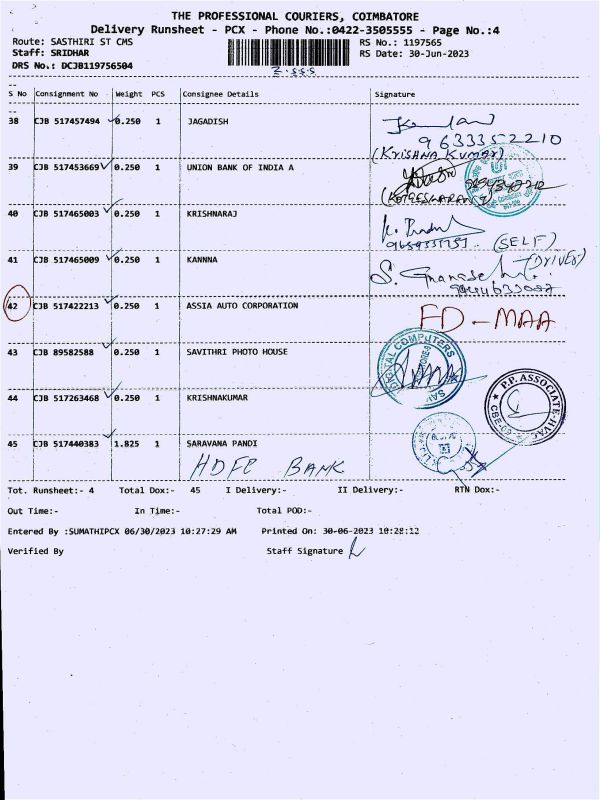 THE PROFESSIONAL COURIERS, COIMBATORE
Delivery Runsheet - PCX - Phone No.:0422-3505555 - Page No.:4
Route: SASTHIRI ST CMS RS No.: 1197565
Staff: SRIDHAR RS Date: 30-Jun-2023
DRS No.: DCJB119756504
S No Consignment No Weight PCS Consignee Details Signature
38 CJB 517457494 0.250 1 JAGADISH
9633352210
(KRISHNA KUMAR)
39 CJB 517453669 0.250 1 UNION BANK OF INDIA A
40 CJB 517465003 0.250 1 KRISHNARAJ
(SELF)
41 CJB 517465009 0.250 1 KANNNA
(DRIVER)
42 CJB 517422213 0.250 1 ASSIA AUTO CORPORATION
FD-MAA
43 CJB 89582588 0.250 1 SAVITHRI PHOTO HOUSE
DIGITAL COMPUTERS
44 CJB 517263468 0.250 1 KRISHNAKUMAR
P.P. ASSOCIATE-HVAC
45 CJB 517440383 1.825 1 SARAVANA PANDI
HDFC BANK
Tot. Runsheet:- 4 Total Dox:- 45 I Delivery:- II Delivery:- RTN Dox:-
Out Time:- In Time:- Total POD:-
Entered By :SUMATHIPCX 06/30/2023 10:27:29 AM Printed On: 30-06-2023 10:28:12
Verified By Staff Signature